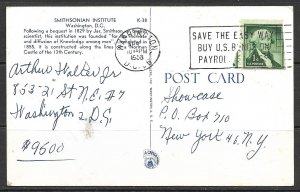 SMITHSONIAN INSTITUTE K-38
Washington, D.C.
Following a bequest in 1829 by Jas. Smithson,
scientist, this institution was founded "for
and diffusion of Knowledge among men"
1855, it is constructed along the lines
Castle of the 12th Century.
WASHINGTON
D.C.
1958
SAVE THE EASY WAY
BUY U.S. BONDS ON
PAYROLL
POST CARD
Arthur Walker Jr
853-21 St N.E. #7
Washington 2 D.C.
$9500
Showcase
P.O. Box 710
New York 46, N.Y.